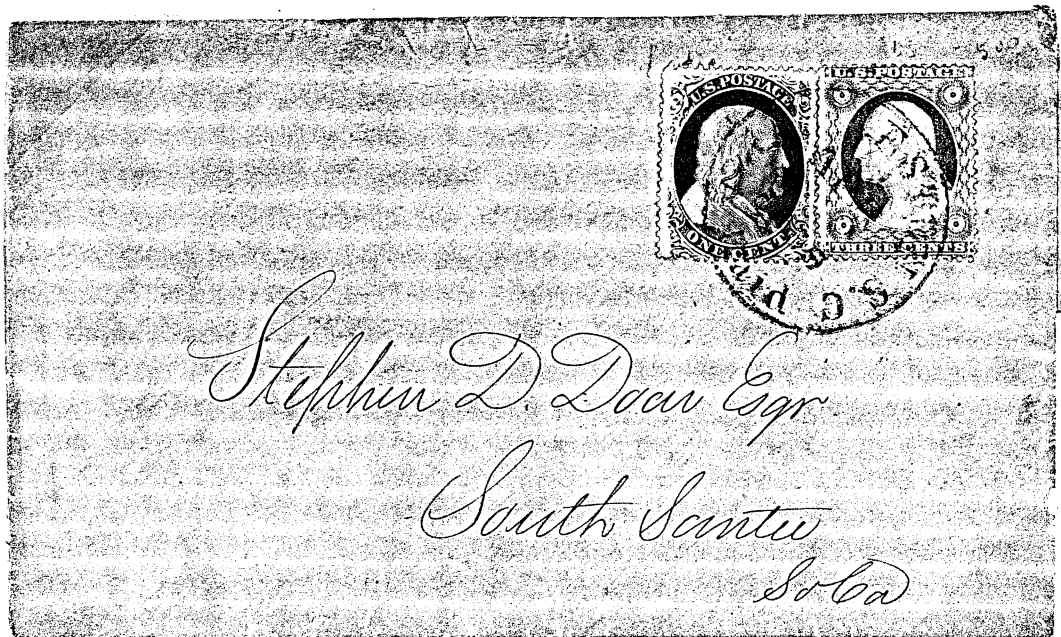 U.S. POSTAGE
ONE CENT
U.S. POSTAGE
THREE CENTS
S.C. PAID
Stephen D Doar Esqr
South Santee
So Ca